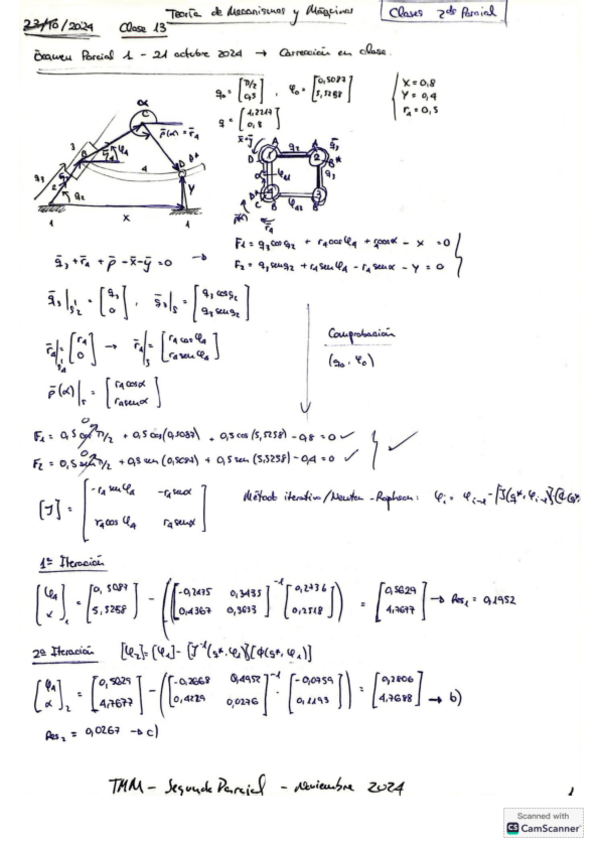 23/10/2024 Clase 13 Teoría de Mecanismos y Máquinas Clases 2do Parcial
Examen Parcial 1 - 21 octubre 2024 → Corrección en clase.
q₀ = [π/2 0,5] , φ₀ = [0,5087 5,5258] X = 0,8
Y = 0,4
q = [1,2217 0,5] r₄ = 0,5
F₁ = q₃ cos q₂ + r₄ cos φ₄ + r₄ cos α - X = 0
q̄₃ + r̄₄ + p̄ - x̄ - ȳ = 0 → F₂ = q₃ sen q₂ + r₄ sen φ₄ - r₄ sen α - Y = 0
q̄₃| = [q₃ 0] , q̄₃| = [q₃ cos q₂ q₃ sen q₂]
r̄₄| = [r₄ 0] → r̄₄| = [r₄ cos φ₄ r₄ sen φ₄] Comprobación
(q₀, φ₀)
p̄(α)| = [r₄ cos α r₄ sen α]
F₁ = 0,5 cos π/2 + 0,5 cos(0,5087) + 0,5 cos(5,5258) - 0,8 = 0 ✓
F₂ = 0,5 sen π/2 + 0,5 sen(0,5087) + 0,5 sen(5,5258) - 0,4 = 0 ✓
[J] = [-r₄ sen φ₄ -r₄ sen α r₄ cos φ₄ r₄ sen α] Método iterativo/Newton-Raphson: φᵢ = φᵢ₋₁ - [J(q*, φᵢ₋₁)]
1ª Iteración
[φ₄ α]₁ = [0,5087 5,5258] - ([-0,2435 0,3435 0,4367 0,3633]⁻¹ [0,2736 0,2518]) = [0,5029 4,7677] → Res₁ = 0,1952
2ª Iteración [φ₂] = [φ₁] - [J⁻¹(q*, φ₁)][ϕ(q*, φ₁)]
[φ₄ α]₂ = [0,5029 4,7677] - ([-0,2668 0,4952 0,4229 0,0276]⁻¹ · [-0,0759 0,1193]) = [0,2806 4,7688] → b)
Res₂ = 0,0267 → c)
TMM - Segundo Parcial - Noviembre 2024 1
Scanned with
CS CamScanner